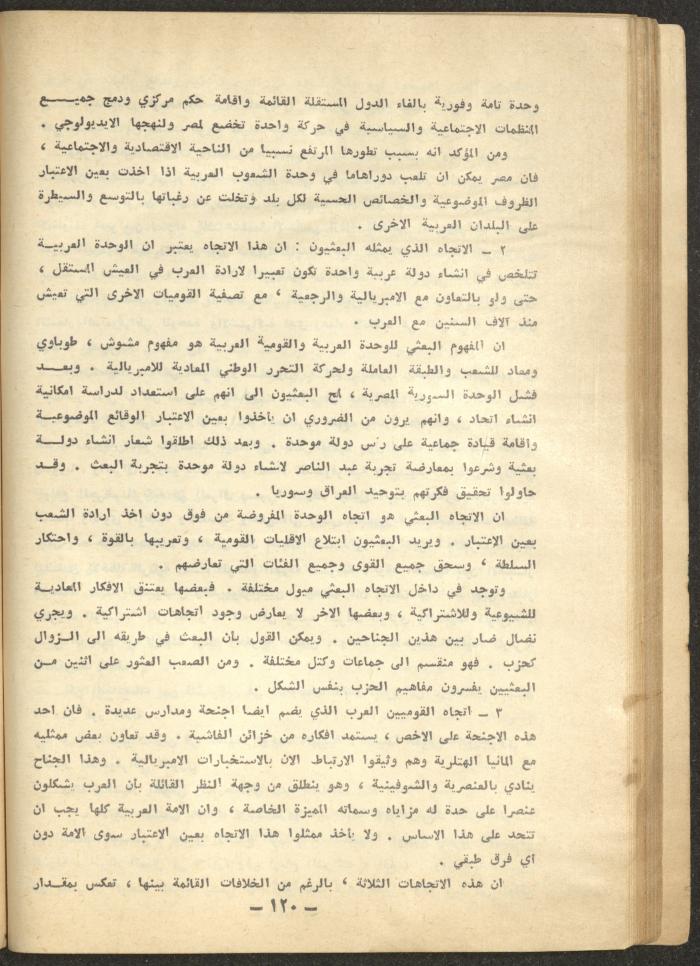 وحدة تامة وفورية بالغاء الدول المستقلة القائمة واقامة حكم مركزي ودمج جميـــع
المنظمات الاجتماعية والسياسية في حركة واحدة تخضع لمصر ولنهجها الايديولوجي .
ومن المؤكد انه بسبب تطورها المرتفع نسبيا من الناحية الاقتصادية والاجتماعية ،
فان مصر يمكن ان تلعب دوراهاما في وحدة الشعوب العربية اذا اخذت بعين الاعتبار
الظروف الموضوعية والخصائص الحسية لكل بلد وتخلت عن رغباتها بالتوسع والسيطرة
على البلدان العربية الاخرى .
٢ ــ الاتجاه الذي يمثله البعثيون : ان هذا الاتجاه يعتبر ان الوحدة العربيــة
تتلخص في انشاء دولة عربية واحدة تكون تعبيرا لارادة العرب في العيش المستقل ،
حتى ولو بالتعاون مع الامبريالية والرجعية ، مع تصفية القوميات الاخرى التي تعيش
منذ آلاف السنين مع العرب .
ان المفهوم البعثي للوحدة العربية والقومية العربية هو مفهوم مشوش ، طوباوي
ومعاد للشعب والطبقة العاملة ولحركة التحرر الوطني المعادية للامبريالية . وبعــد
فشل الوحدة السورية المصرية ، لمح البعثيون الى انهم على استعداد لدراسة امكانية
انشاء اتحاد ، وانهم يرون من الضروري ان يأخذوا بعين الاعتبار الوقائع الموضوعيــة
واقامة قيادة جماعية على رأس دولة موحدة . وبعد ذلك اطلقوا شعار انشاء دولــة
بعثية وشرعوا بمعارضة تجربة عبد الناصر لانشاء دولة موحدة بتجربة البعث . وقــد
حاولوا تحقيق فكرتهم بتوحيد العراق وسوريا .
ان الاتجاه البعثي هو اتجاه الوحدة المفروضة من فوق دون اخذ ارادة الشعب
بعين الاعتبار . ويريد البعثيون ابتلاع الاقليات القومية ، وتعريبها بالقوة ، واحتكار
السلطة ، وسحق جميع القوى وجميع الفئات التي تعارضهم .
وتوجد في داخل الاتجاه البعثي ميول مختلفة . فبعضها يعتنق الافكار المعادية
للشيوعية وللاشتراكية ، وبعضها الاخر لا يعارض وجود اتجاهات اشتراكية . ويجري
نضال ضار بين هذين الجناحين . ويمكن القول بأن البعث في طريقه الى الــزوال
كحزب . فهو منقسم الى جماعات وكتل مختلفة . ومن الصعب العثور على اثنين مــن
البعثيين يفسرون مفاهيم الحزب بنفس الشكل .
٣ ــ اتجاه القوميين العرب الذي يضم ايضا اجنحة ومدارس عديدة . فان احد
هذه الاجنحة على الاخص ، يستمد افكاره من خزائن الفاشية . وقد تعاون بعض ممثليه
مع المانيا الهتلرية وهم وثيقوا الارتباط الان بالاستخبارات الامبريالية . وهذا الجناح
ينادي بالعنصرية والشوفينية ، وهو ينطلق من وجهة النظر القائلة بأن العرب يشكلون
عنصرا على حدة له مزاياه وسماته المميزة الخاصة ، وان الامة العربية كلها يجب ان
تتحد على هذا الاساس . ولا يأخذ ممثلوا هذا الاتجاه بعين الاعتبار سوى الامة دون
أي فرق طبقي .
ان هذه الاتجاهات الثلاثة ، بالرغم من الخلافات القائمة بينها ، تعكس بمقــدار
ــ ١٢٠ ــ